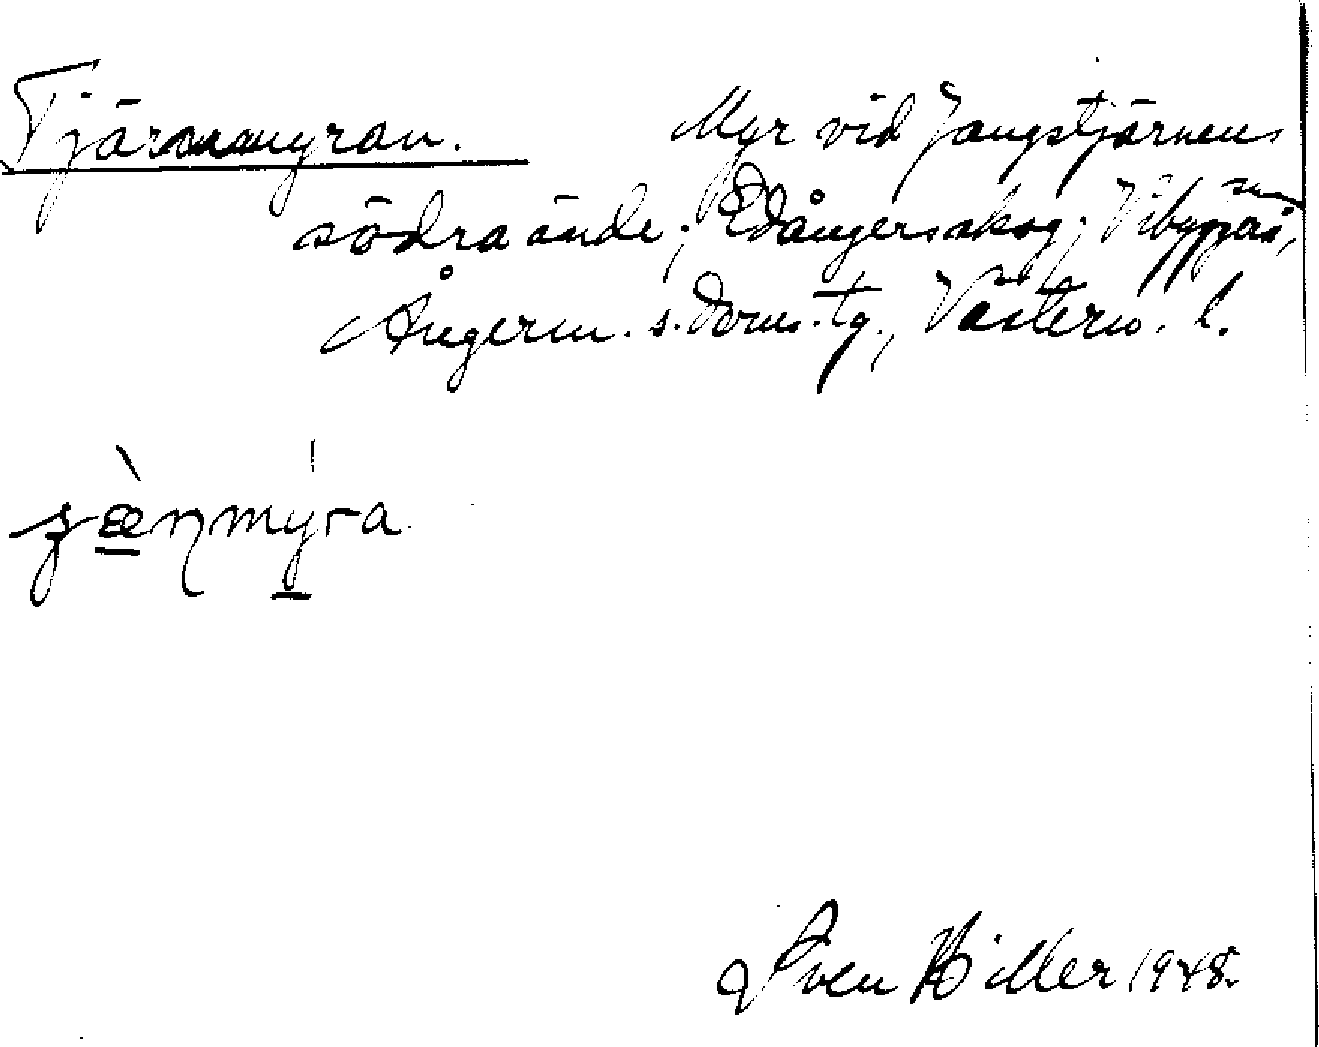 Tjärnmyran. Myr vid Jangstjärnens
södra ände, Edångersskog, Vibyggerå sn,
Ångerm. s. doms. tg., Västern. l.
myra
Sven Hiller 1948.